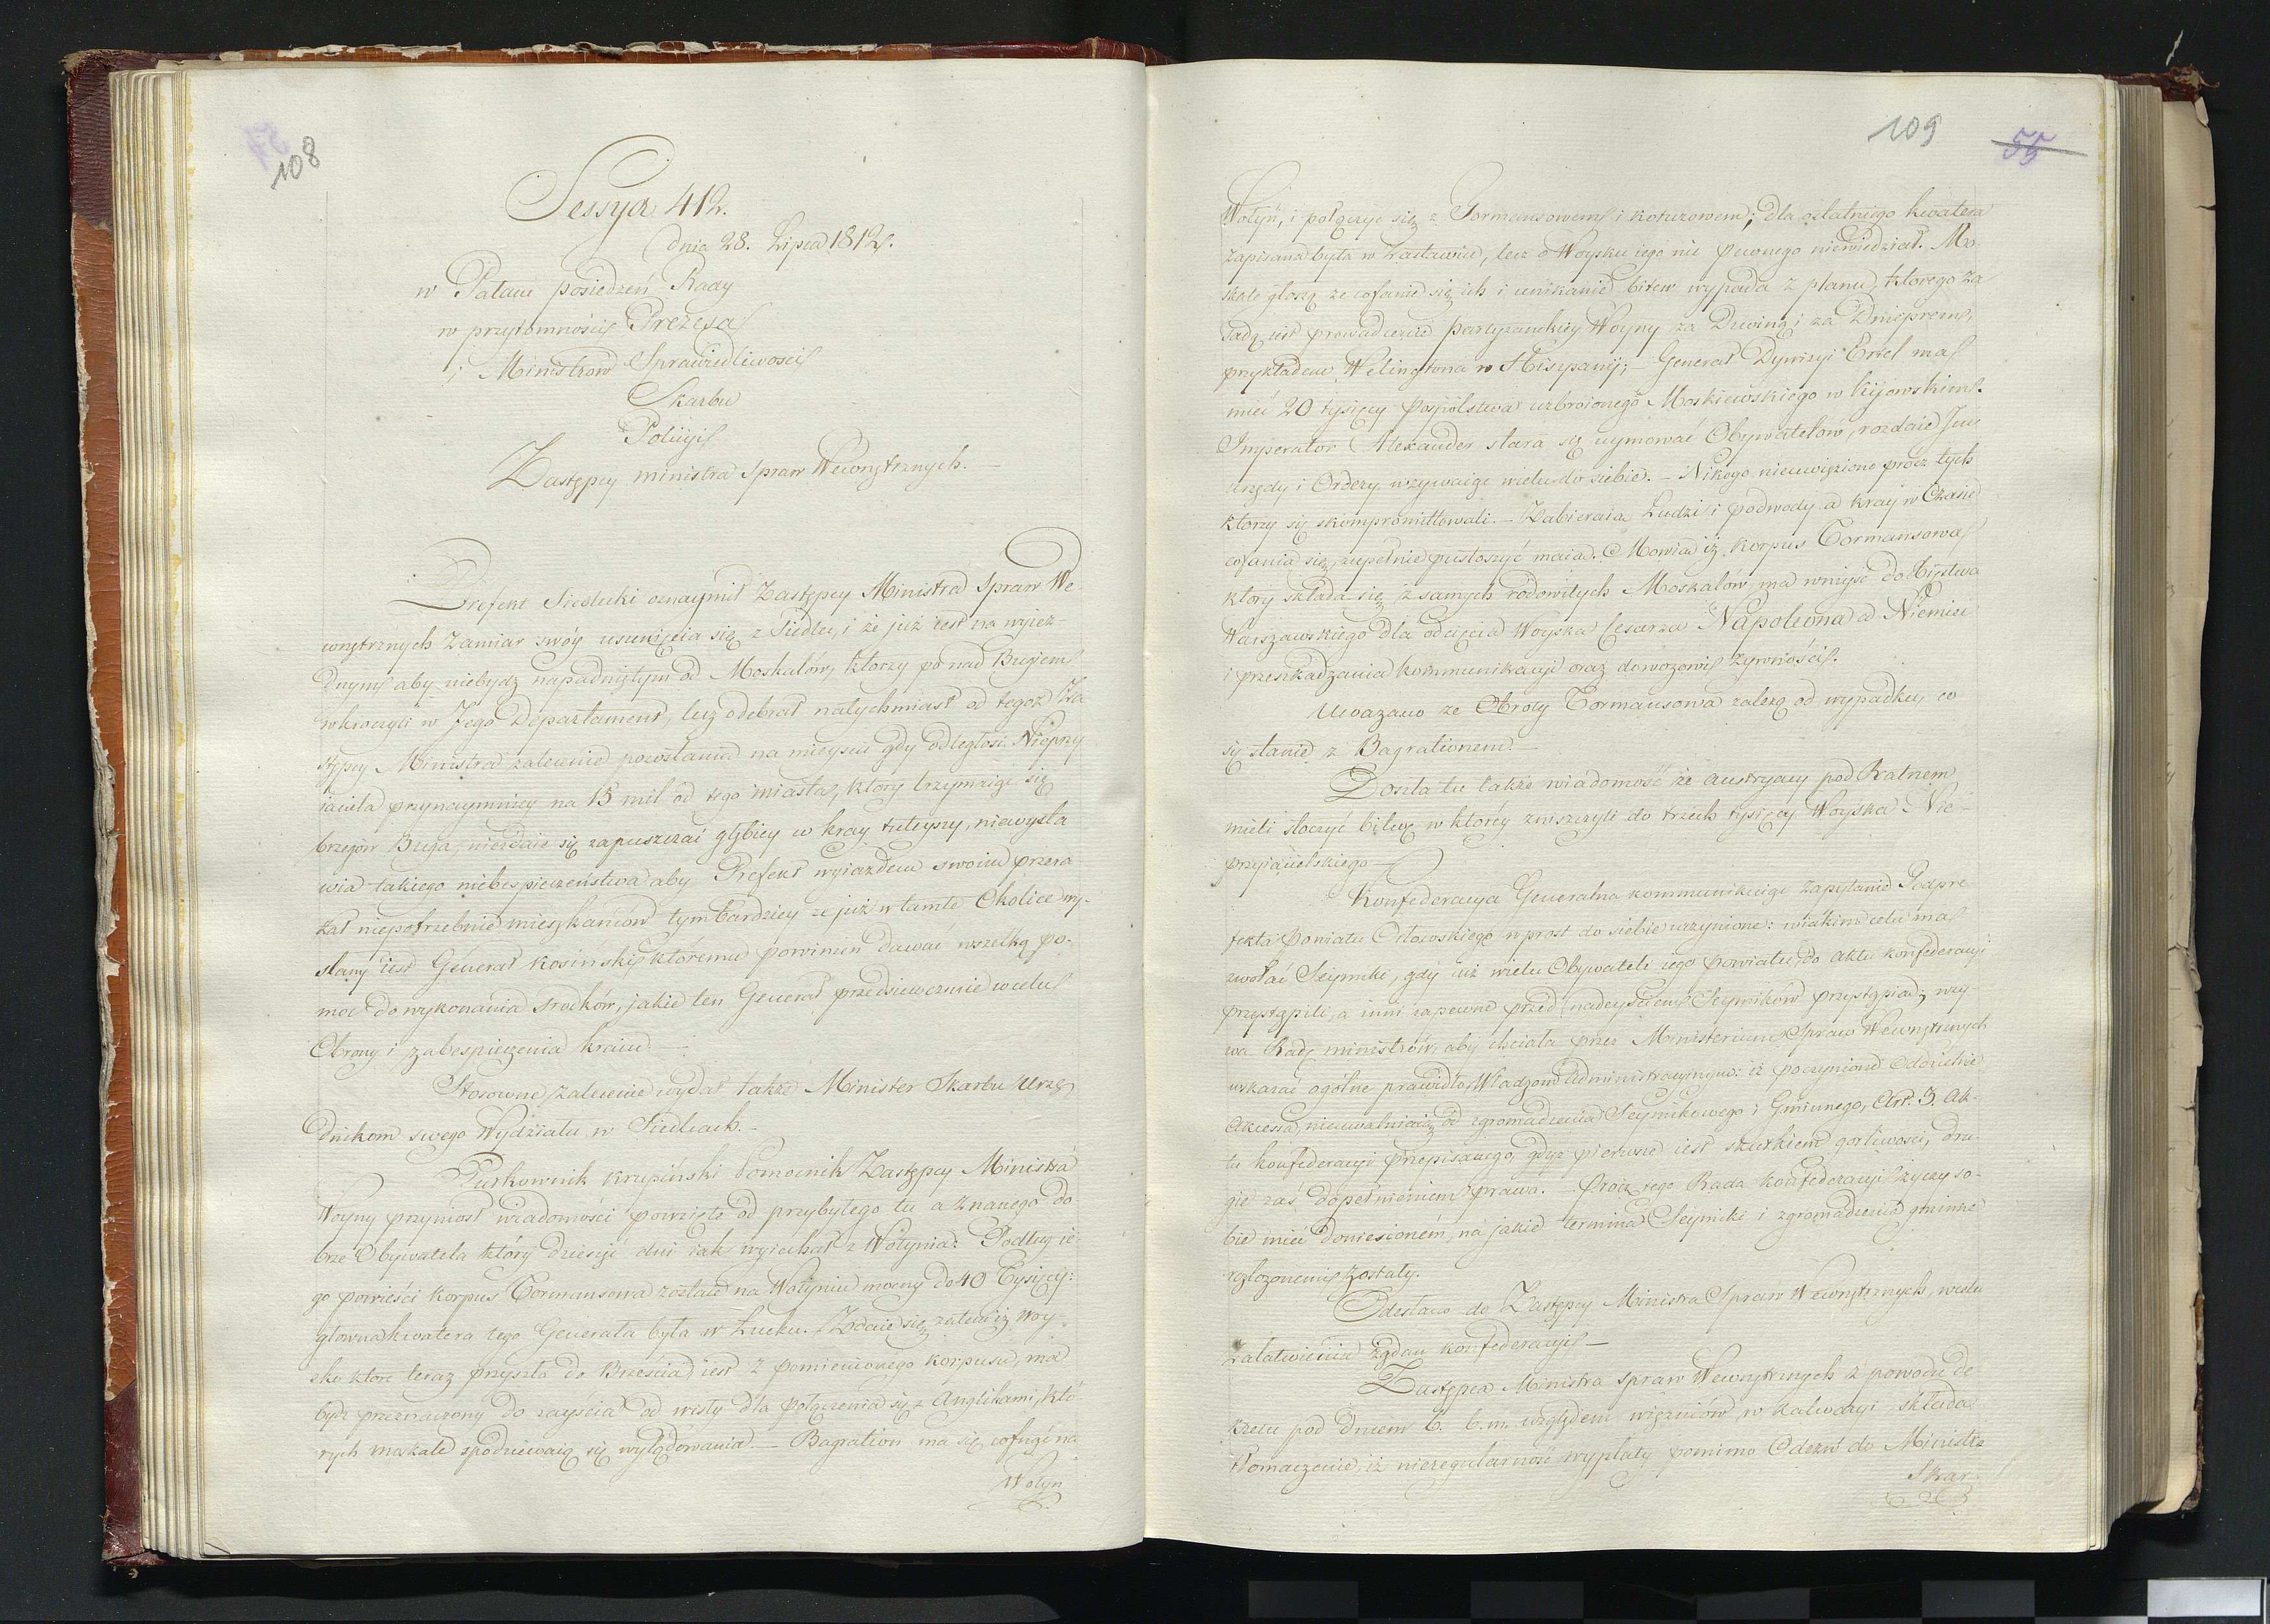 108
Sessya 412.
dnia 28. Lipca 1812.
w Pałacu posiedzeń Rady
w przytomności Prezesa
i Ministrów Sprawiedliwości
Skarbu
Policyi
Zastępcy ministra Spraw Wewnętrznych. —
Prefekt Siedlecki oznaymił Zastępcy Ministra Spraw We-
wnętrznych zamiar swóy usunięcia się z Siedlec, i że już iest na wyiez-
dnym aby niebydz napadniętym od Moskalów, którzy ponad Bugiem
wkroczyli w Jego Departament, lecz odebrał natychmiast od tegoż Za
stępcy Ministra zalecenie pozostania na mieyscu gdy odległość Nieprzy
iaciela przynaymniey na 15 mil od tego miasta, który trzymaiąc się
brzegów Buga, niezdaie się zapuszczać głębiey w kray tuteyszy, niewysta
wia takiego niebespieczeństwa aby Prefekt wyiazdem swoim przera
żał niepotrzebnie mieszkańców tymbardziey że już w tamte Okolice wy-
słany iest Generał Kosiński któremu powinien dawać wszelką po-
moc do wykonania srodków, jakie ten Generał przedsiewezmie w celu
Obrony i zabespieczenia kraiu. —
Stosowne zalecenie wydał także Minister Skarbu Urzę
dnikom swego Wydziału w Siedlcach. —
Pułkownik Krupiński Pomocnik Zastępcy Ministra
Woyny przyniosł wiadomości powzięte od przybyłego tu a znanego do-
brze Obywatela który dziesięć dni iak wyiechał z Wołynia: Podług ie-
go powieści korpus Tormansowa został na Wołyniu mocny do 40 Tysięcy:
główna kwatera tego Generała była w Łucku. Zdaie się zatem iż woy-
sko które teraz przyszło do Brześcia iest z pomienionego korpusu, ma
bydz przeznaczony do zayścia od wisły dla połączenia się z Anglikami, któ-
rych moskale spodziewaią się wylądowania. — Bagration ma się cofnąć na
Wołyń
109
55
Wołyń, i połączyć się z Tormansowem i Kotuzowem; dla ostatniego kwatera
zapisana była w Zasławiu, lecz o Woysku iego nic pewnego niewiedział. Mo
skale głoszą że cofanie się ich i unikanie bitew wypada z planu, którego za
sadą iest prowadzenie partyzanckiey Woyny za Dzwiną i za Dnieprem,
przykładem Welingtona w Hiszpanij; — Generał Dywizyi Ertel ma
mieć 20 tysięcy pospólstwa uzbroionego Moskiewskiego w kijowskim.
Imperator Alexander stara się uymować Obywatelów, rozdaie Jm
urzędy i Ordery wzywaiąc wielu do siebie. — Nikogo nieuwięziono prócz tych
którzy się skompromittowali. — Zabieraia Ludzi i podwody a kray w Czasie
cofania się zupełnie pustoszyć maia. Mowia iż korpus Tormansowa
który składa się z samych rodowitych Moskalów ma wniyść do Xięstwa
Warszawskiego dla odcięcia Woyska Cesarza Napoleona od Niemiec
i przeszkadzania kommunikacyi oraz dowozowi żywności.
Uważano że Obroty Tormansowa zależą od wypadku co
się stanie z Bagrationem. —
Doszła tu także wiadomość że austryacy pod Ratnem
mieli stoczyć bitwę w którey zniszczyli do trzech tysięcy Woyska Nie-
przyiacielskiego —
Konfederacya Generalna kommunikuiąc Zapytanie Podpre
fekta Powiatu Orłowskiego wprost do siebie uczynione: w iakim celu ma
zwołać Seymiki, gdy już wielu Obywateli iego powiatu, do aktu konfederacyi
przystąpili, a inni zapewne przed nadeyściem Seymików przystąpia; wzy-
wa Radę ministrów, aby chciała przez Ministerium Spraw Wewnętrznych
wskazać ogólne prawidło Władzom administracyjnym: iż poczynione Oddzielnie
Akcessa, nieuwalniaią od zgromadzenia Seymikowego i Gminnego, Art. 3. Ak-
tu konfederacyi przepisanego, gdyż pierwsze iest skutkiem gorliwości, dru-
gie zaś dopełnieniem prawa. — Prócz tego Rada konfederacyi życzy so-
bie mieć doniesionem, na jakie termina Seymiki i zgromadzenia gminne
rozłożonemi zostały.
Odesłano do Zastępcy Ministra Spraw Wewnętrznych, w celu
załatwienia żądań konfederacyi —
Zastępca Ministra Spraw Wewnętrznych z powodu de
kretu pod Dniem 6. b. m. względem więzniów w kalwaryi składa
tłomaczenie, iż nieregularność wypłaty pomimo Odezw do Ministra
Skar